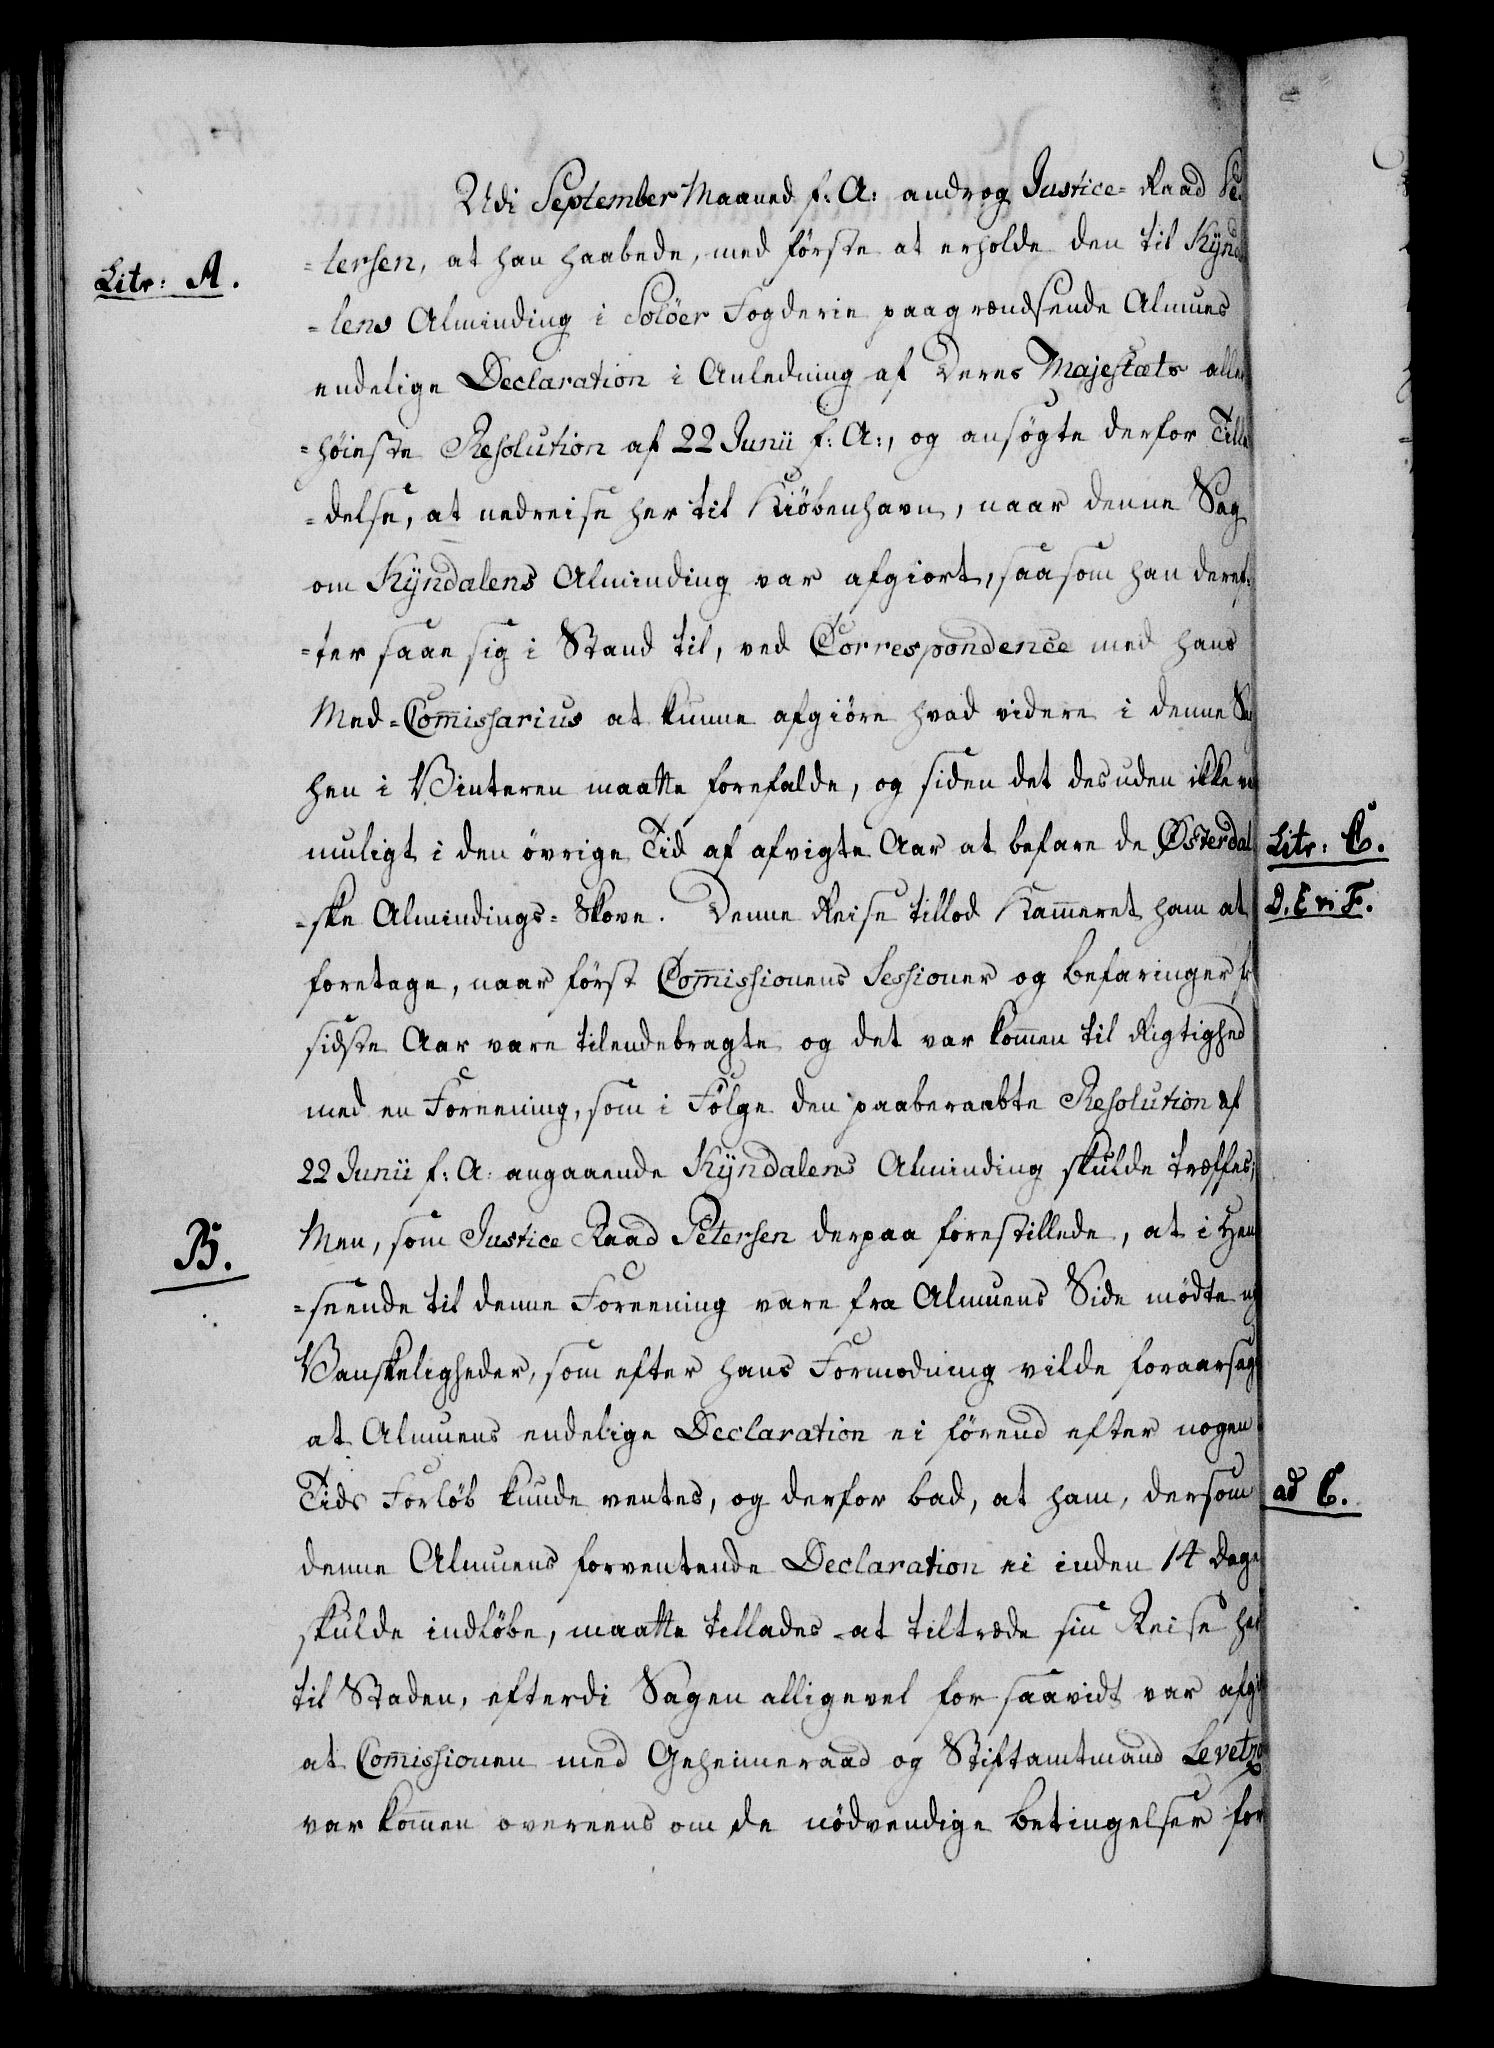 Udi September Maaned f: A: androg Justice-Raad Pe
Litr: A.
=tersen, at han haabede, med første at erholde den til Kÿnda
=lens Alminding i Solöer Fogderie paagrændsende Almues
endelige Declaration i Anledning af Deres Majestæts aller
=høieste Resolution af 22 Junii f: A:, og ansøgte derfor Tilla
=delse, at nedreise her til Kiöbenhavn, naar denne Sag
om Kÿndalens Alminding var afgiort, saasom han deref=
=ter saae sig i Stand til, ved Correspondence med hans
Med=Com̄issarius at kunne afgiöre hvad videre i denne Sag
hen i Vinteren maatte forefalde, og siden det desuden ikke va
muligt i den övrige Tid af afvigte Aar at befare de Østerdal
=ske Almindings=Skove. Denne Reise tillod Kam̄eret ham at
foretage, naar först Com̄issionens Sessioner og Befaringer f
sidste Aar vare tilendebragte og det var kom̄en til Rigtighed
med en Foreening, som i Fölge den paaberaabte Resolution af
22 Junii f: A: angaaende Kÿndalens Alminding skulde træffes;
B.
Men, som Justice Raad Petersen derpaa forestillede, at i Hen
=seende til denne Foreening vare fra Almuens Side mödte
Vanskeligheder, som efter hans Formodning vilde foraarsag
at Almuens endelige Declaration ei förend efter nogen
Tids Forlöb kunde ventes, og derfor bad, at ham, dersom
denne Almuens forventende Declaration ei inden 14 Dage
skulde indlöbe, maatte tillades at tiltræde sin Reise her
til Staden, efterdi Sagen alligevel for saavidt var afgi
at Com̄issionen med Geheimeraad og Stiftamtmand Levetzo
var kom̄en overeens om de nödvendige Betingelser for
Litr: C.
D. E og F.
ad C.